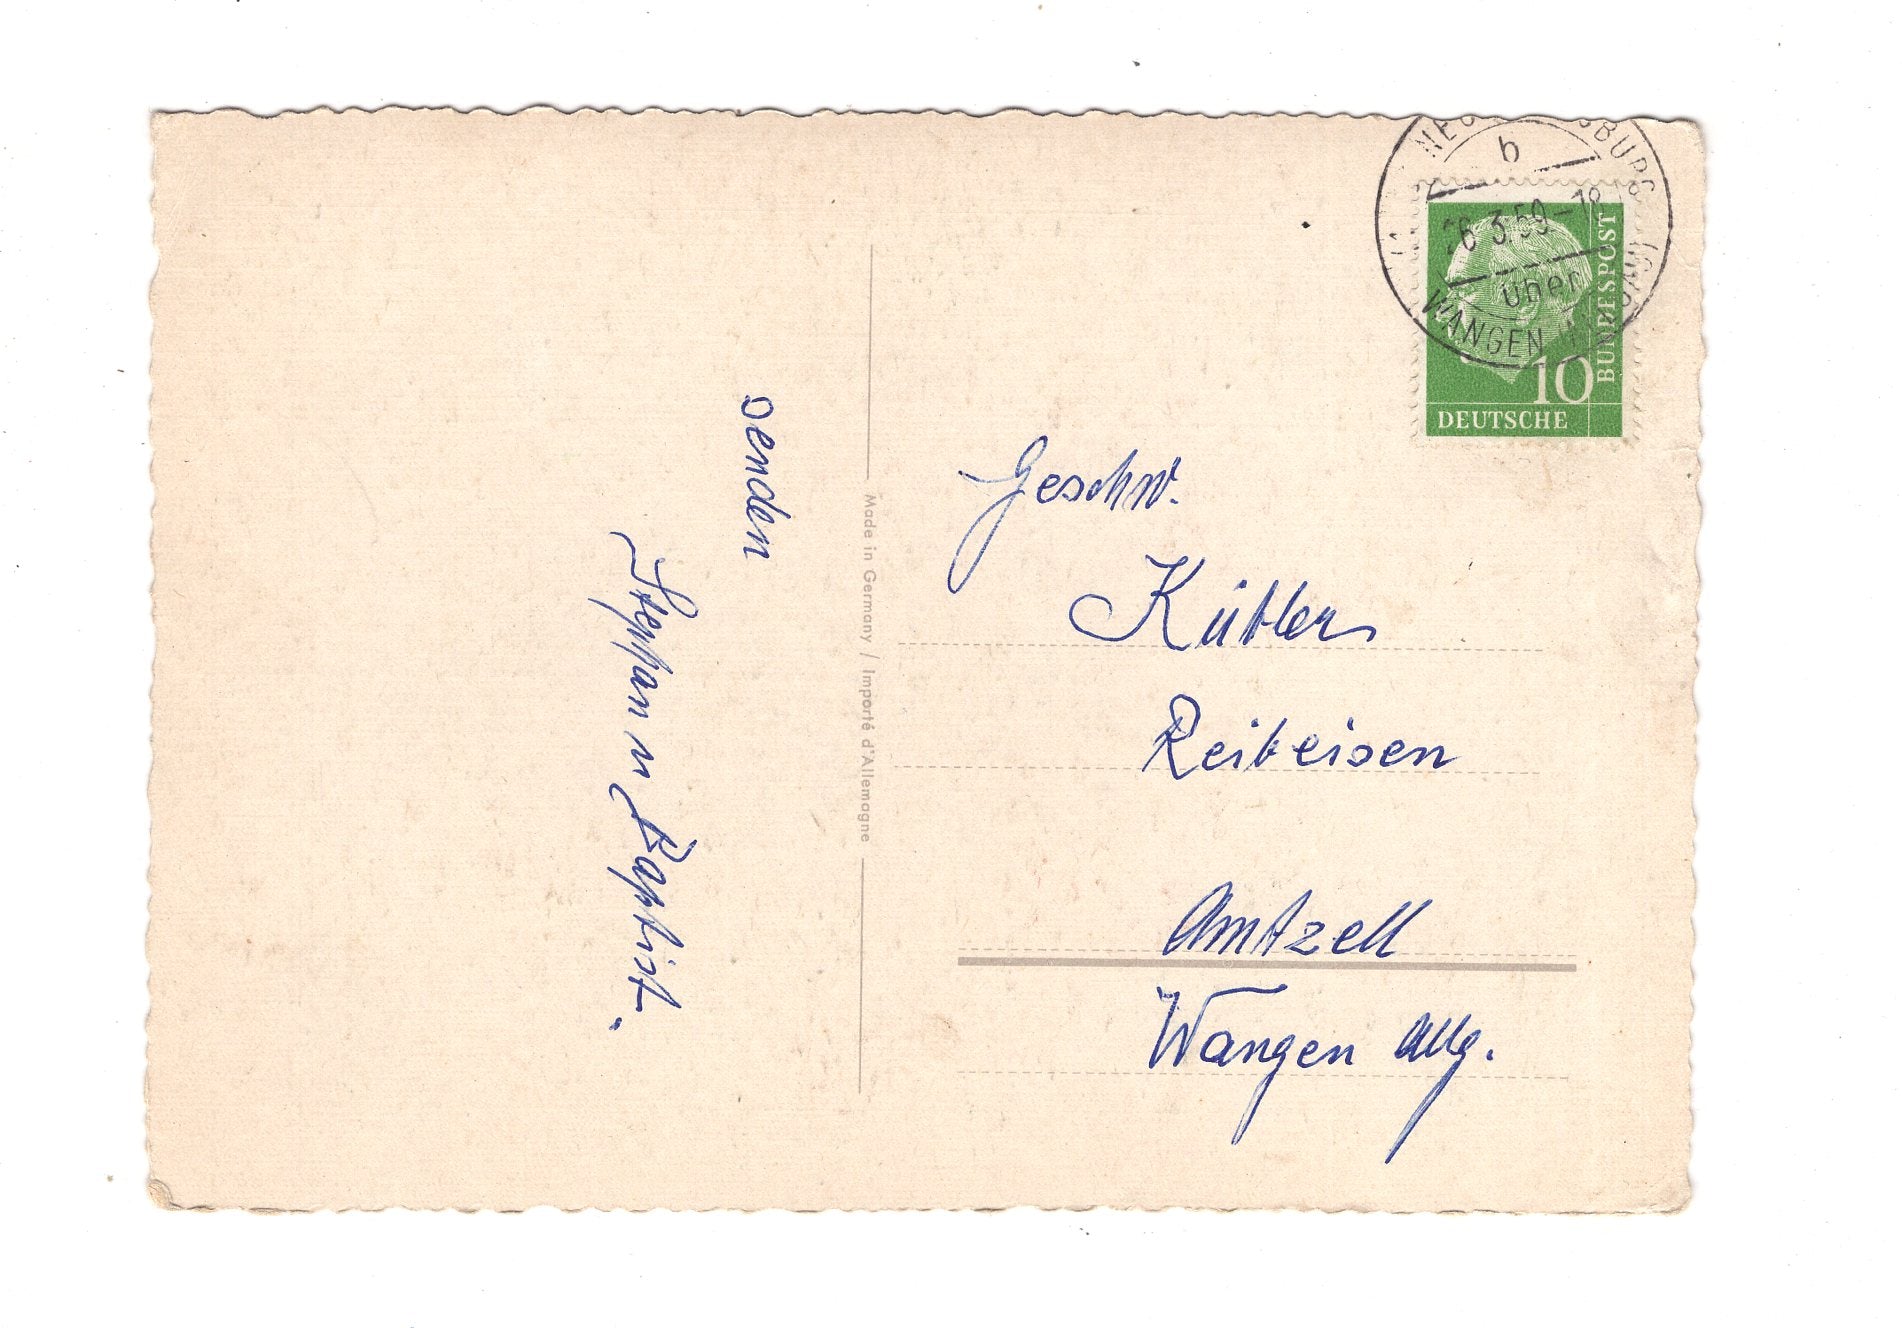 senden
Stephan u Baptist.
Made in Germany / Importé d'Allemagne
b
26.3.59-18
über
WANGEN
10
BUNDESPOST
DEUTSCHE
Geschw.
Kübler
Reibeisen
Amtzell
Wangen Allg.